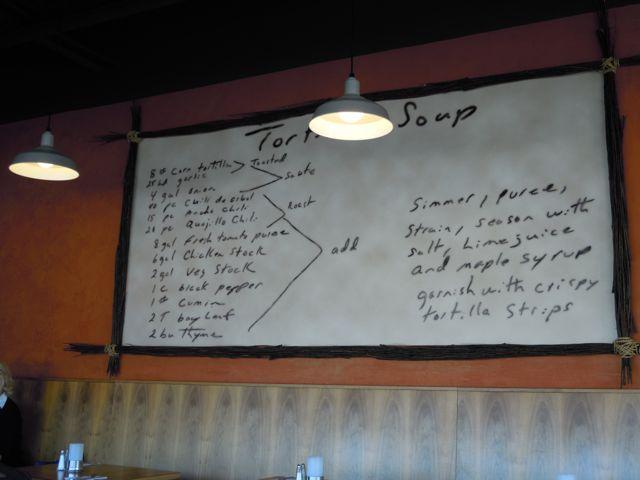 Tort Soup
8 # Corn tortilla Toasted
25 hd garlic
4 gal onion Saute
40 pc Chili de arbol
15 pc Ancho Chili Roast
21 pc Quajillo Chili
8 gal Fresh tomato puree
6 gal Chicken Stock
2 gal Veg Stock
add
1 C black pepper
1 # Cumin
2 T bay leaf
2 bu Thyme
Simmer, puree,
Strain, season with
salt, Lime juice
and maple syrup
garnish with crispy
tortilla Strips